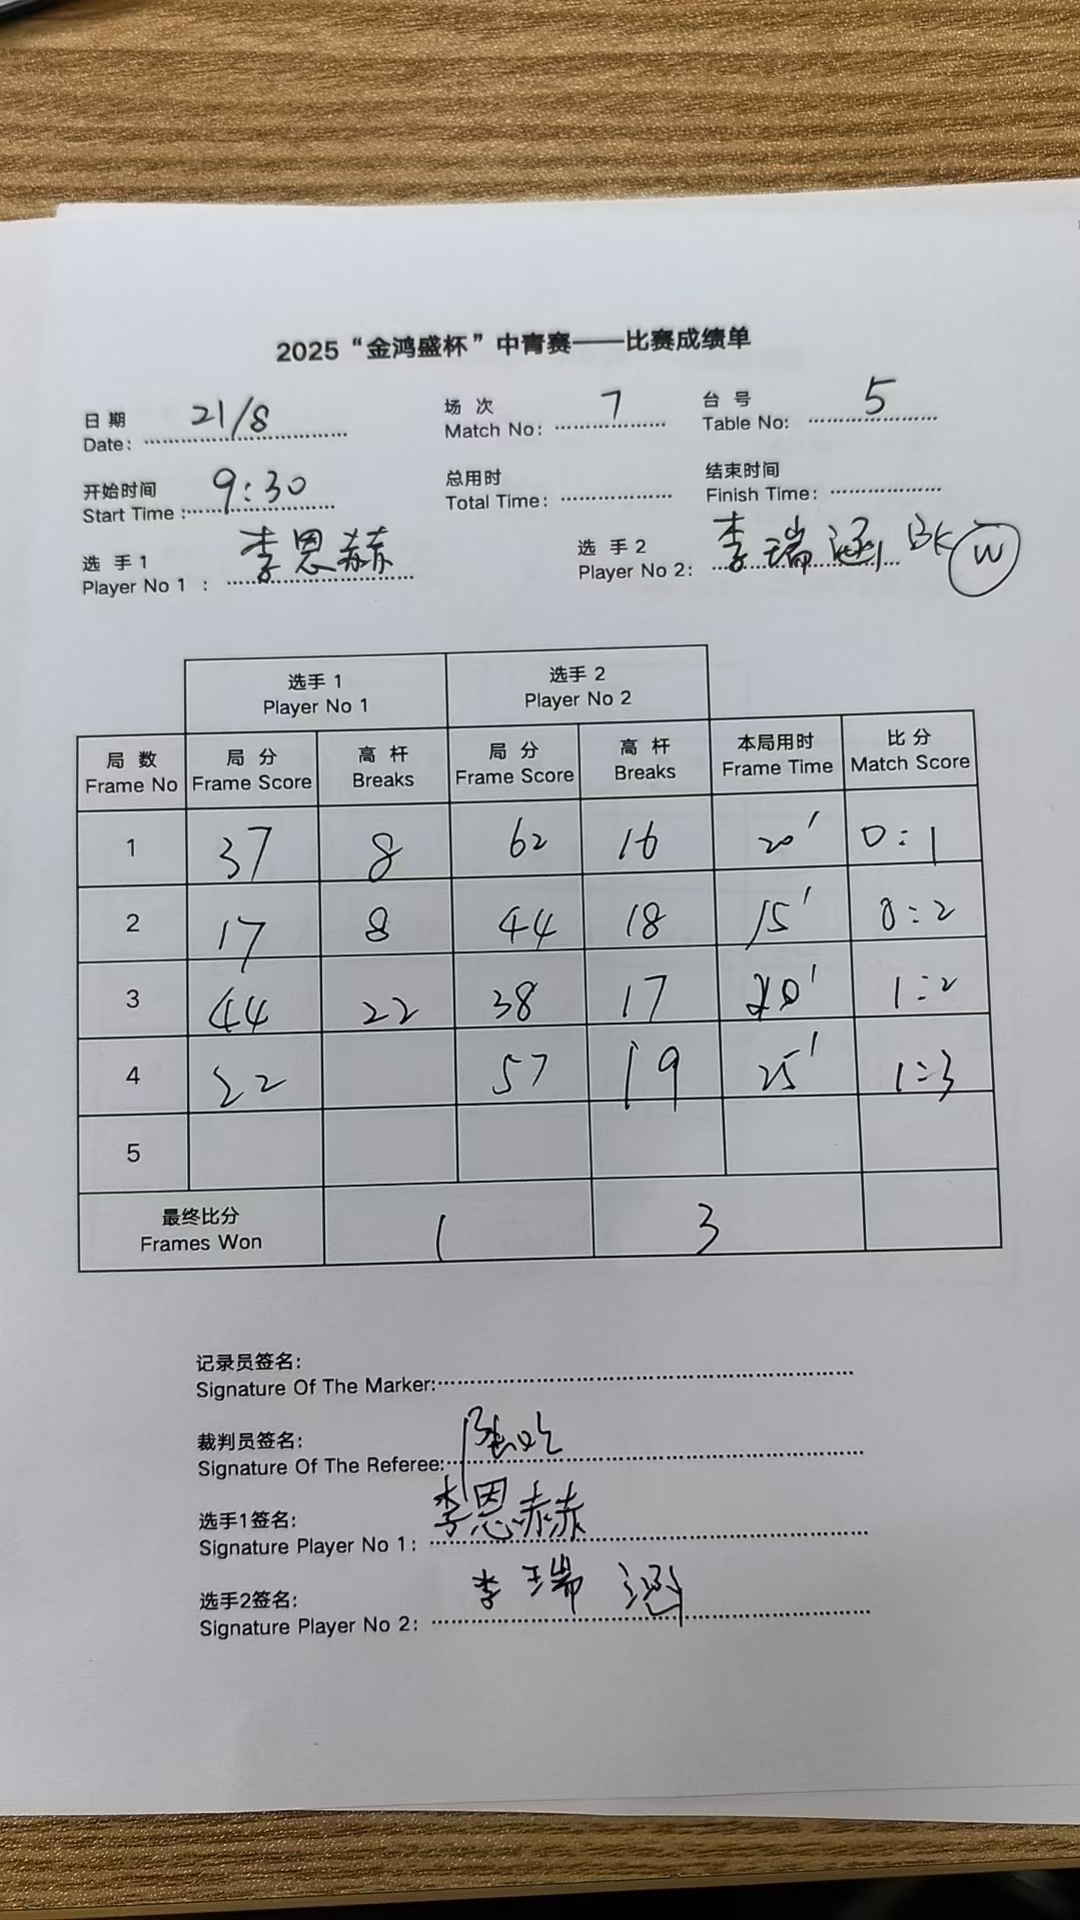 2025“金鸿盛杯”中青赛——比赛成绩单
日期 21/8 场次 7 台号 5
Date: Match No: Table No:
开始时间 9:30 总用时 结束时间
Start Time : Total Time: Finish Time:
选手1 李恩赫 选手2 李瑞涵 BK W
Player No 1 : Player No 2:
选手1 选手2
Player No 1 Player No 2
局数 局分 高杆 局分 高杆 本局用时 比分
Frame No Frame Score Breaks Frame Score Breaks Frame Time Match Score
1 37 8 62 16 20' 0:1
2 17 8 44 18 15' 0:2
3 44 22 38 17 20' 1:2
4 22 57 19 25' 1:3
5
最终比分 1 3
Frames Won
记录员签名:
Signature Of The Marker:
裁判员签名:
Signature Of The Referee:
选手1签名: 李恩赫
Signature Player No 1:
选手2签名: 李瑞涵
Signature Player No 2: